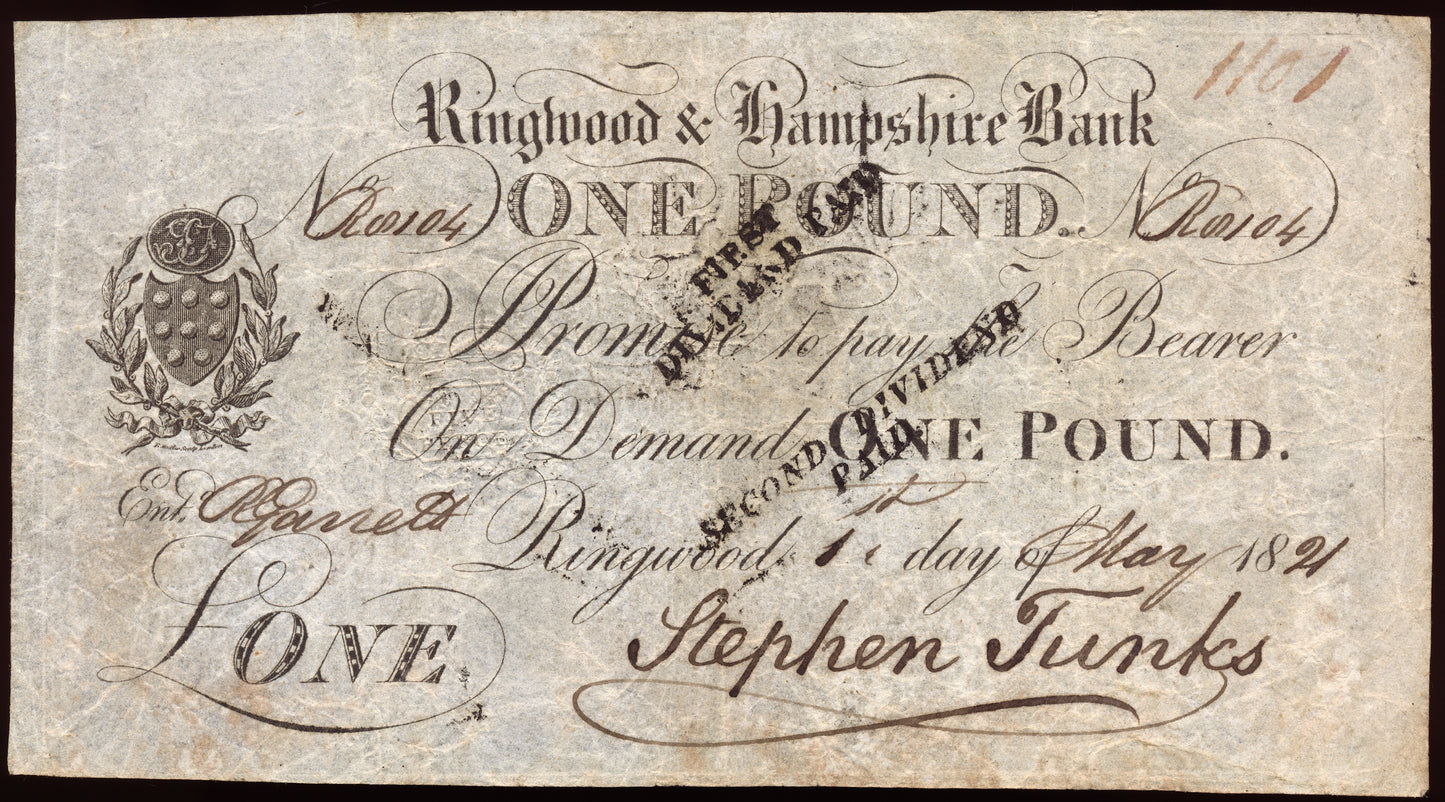 1101
Ringwood & Hampshire Bank
No R8104 ONE POUND. No R8104
I Promise to pay the Bearer
On Demand ONE POUND.
Entd. R Garrett
Ringwood, 1st day of May 1821
£ONE
Stephen Tunks
FIRST
DIVIDEND PAID
SECOND DIVIDEND
PAID